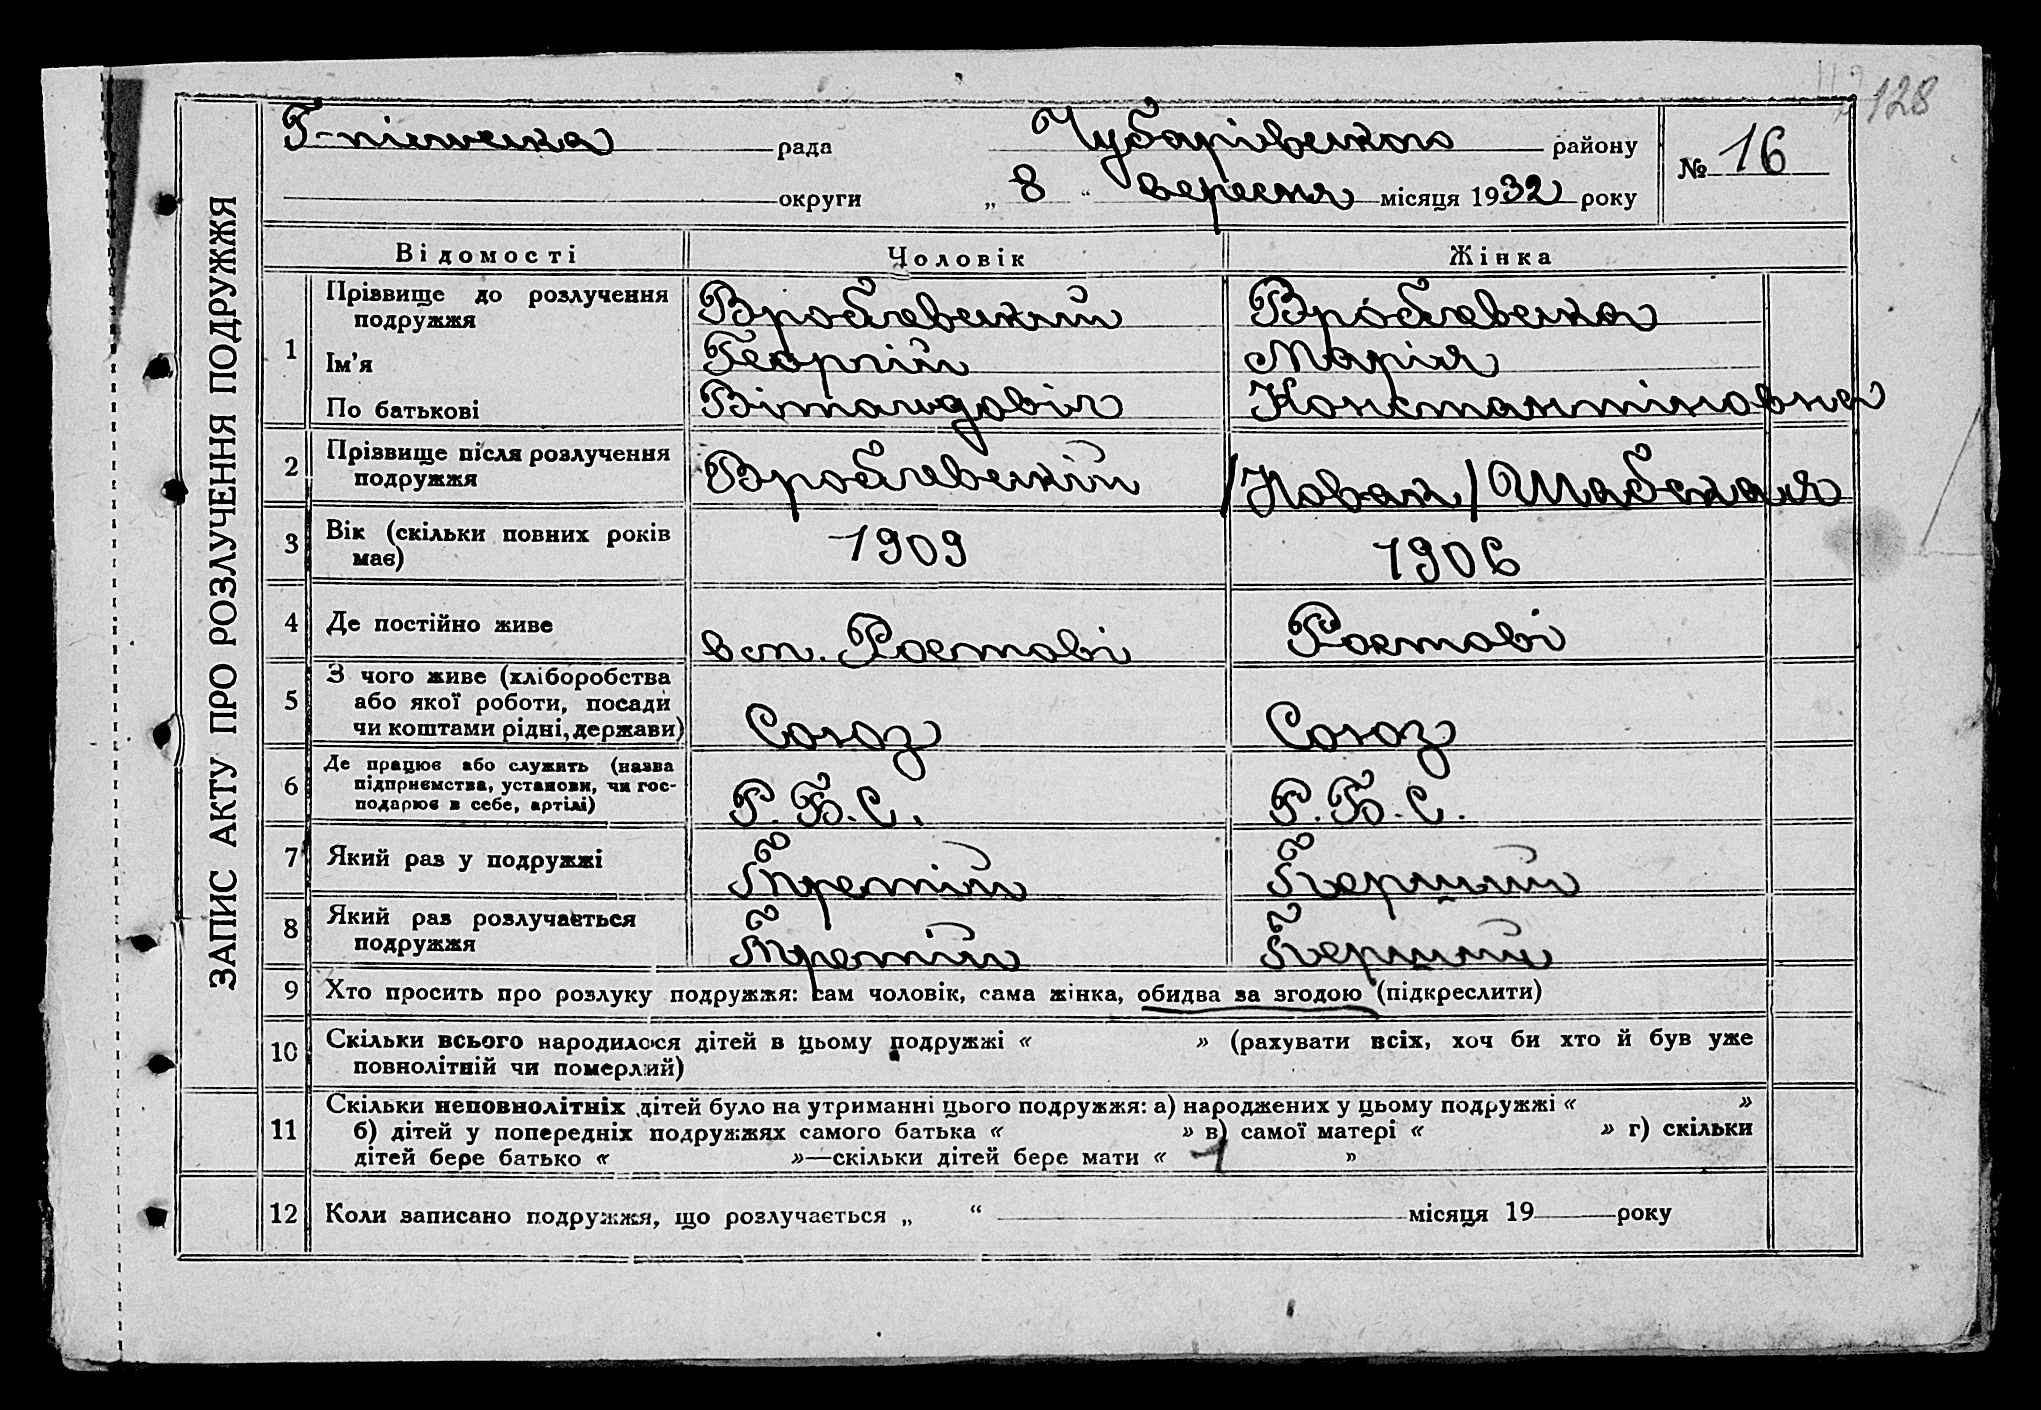 128
Г-пільська рада Чубарівського району № 16
округи „ 8 “ вересня місяця 1932 року
ЗАПИС АКТУ ПРО РОЗЛУЧЕННЯ ПОДРУЖЖЯ
Відомості Чоловік Жінка
1 Прізвище до розлучення подружжя Вроблевський Вроблевська
Ім’я Георгій Марія
По батькові Константіновна
2 Прізвище після розлучення подружжя Вроблевскій /Новак/
3 Вік (скільки повних років має) 1909 1906
4 Де постійно живе в м. Ростові Ростові
5 З чого живе (хліборобства
або якої роботи, посади
чи коштами рідні, держави) Союз Союз
6 Де працює або служить (назва
підприємства, установи, чи гос-
подарює в себе, артілі) Р. Б. С. Р. Б. С.
7 Який раз у подружжі Третій Перший
8 Який раз розлучається
подружжя Третій Перший
9 Хто просить про розлуку подружжя: сам чоловік, сама жінка, обидва за згодою (підкреслити)
10 Скільки всього народилося дітей в цьому подружжі « » (рахувати всіх, хоч би хто й був уже
повнолітній чи померлий)
11 Скільки неповнолітніх дітей було на утриманні цього подружжя: а) народжених у цьому подружжі « »
б) дітей у попередніх подружжях самого батька « » в) самої матері « » г) скільки
дітей бере батько « »—скільки дітей бере мати « 1 »
12 Коли записано подружжя, що розлучається „ “ місяця 19 року